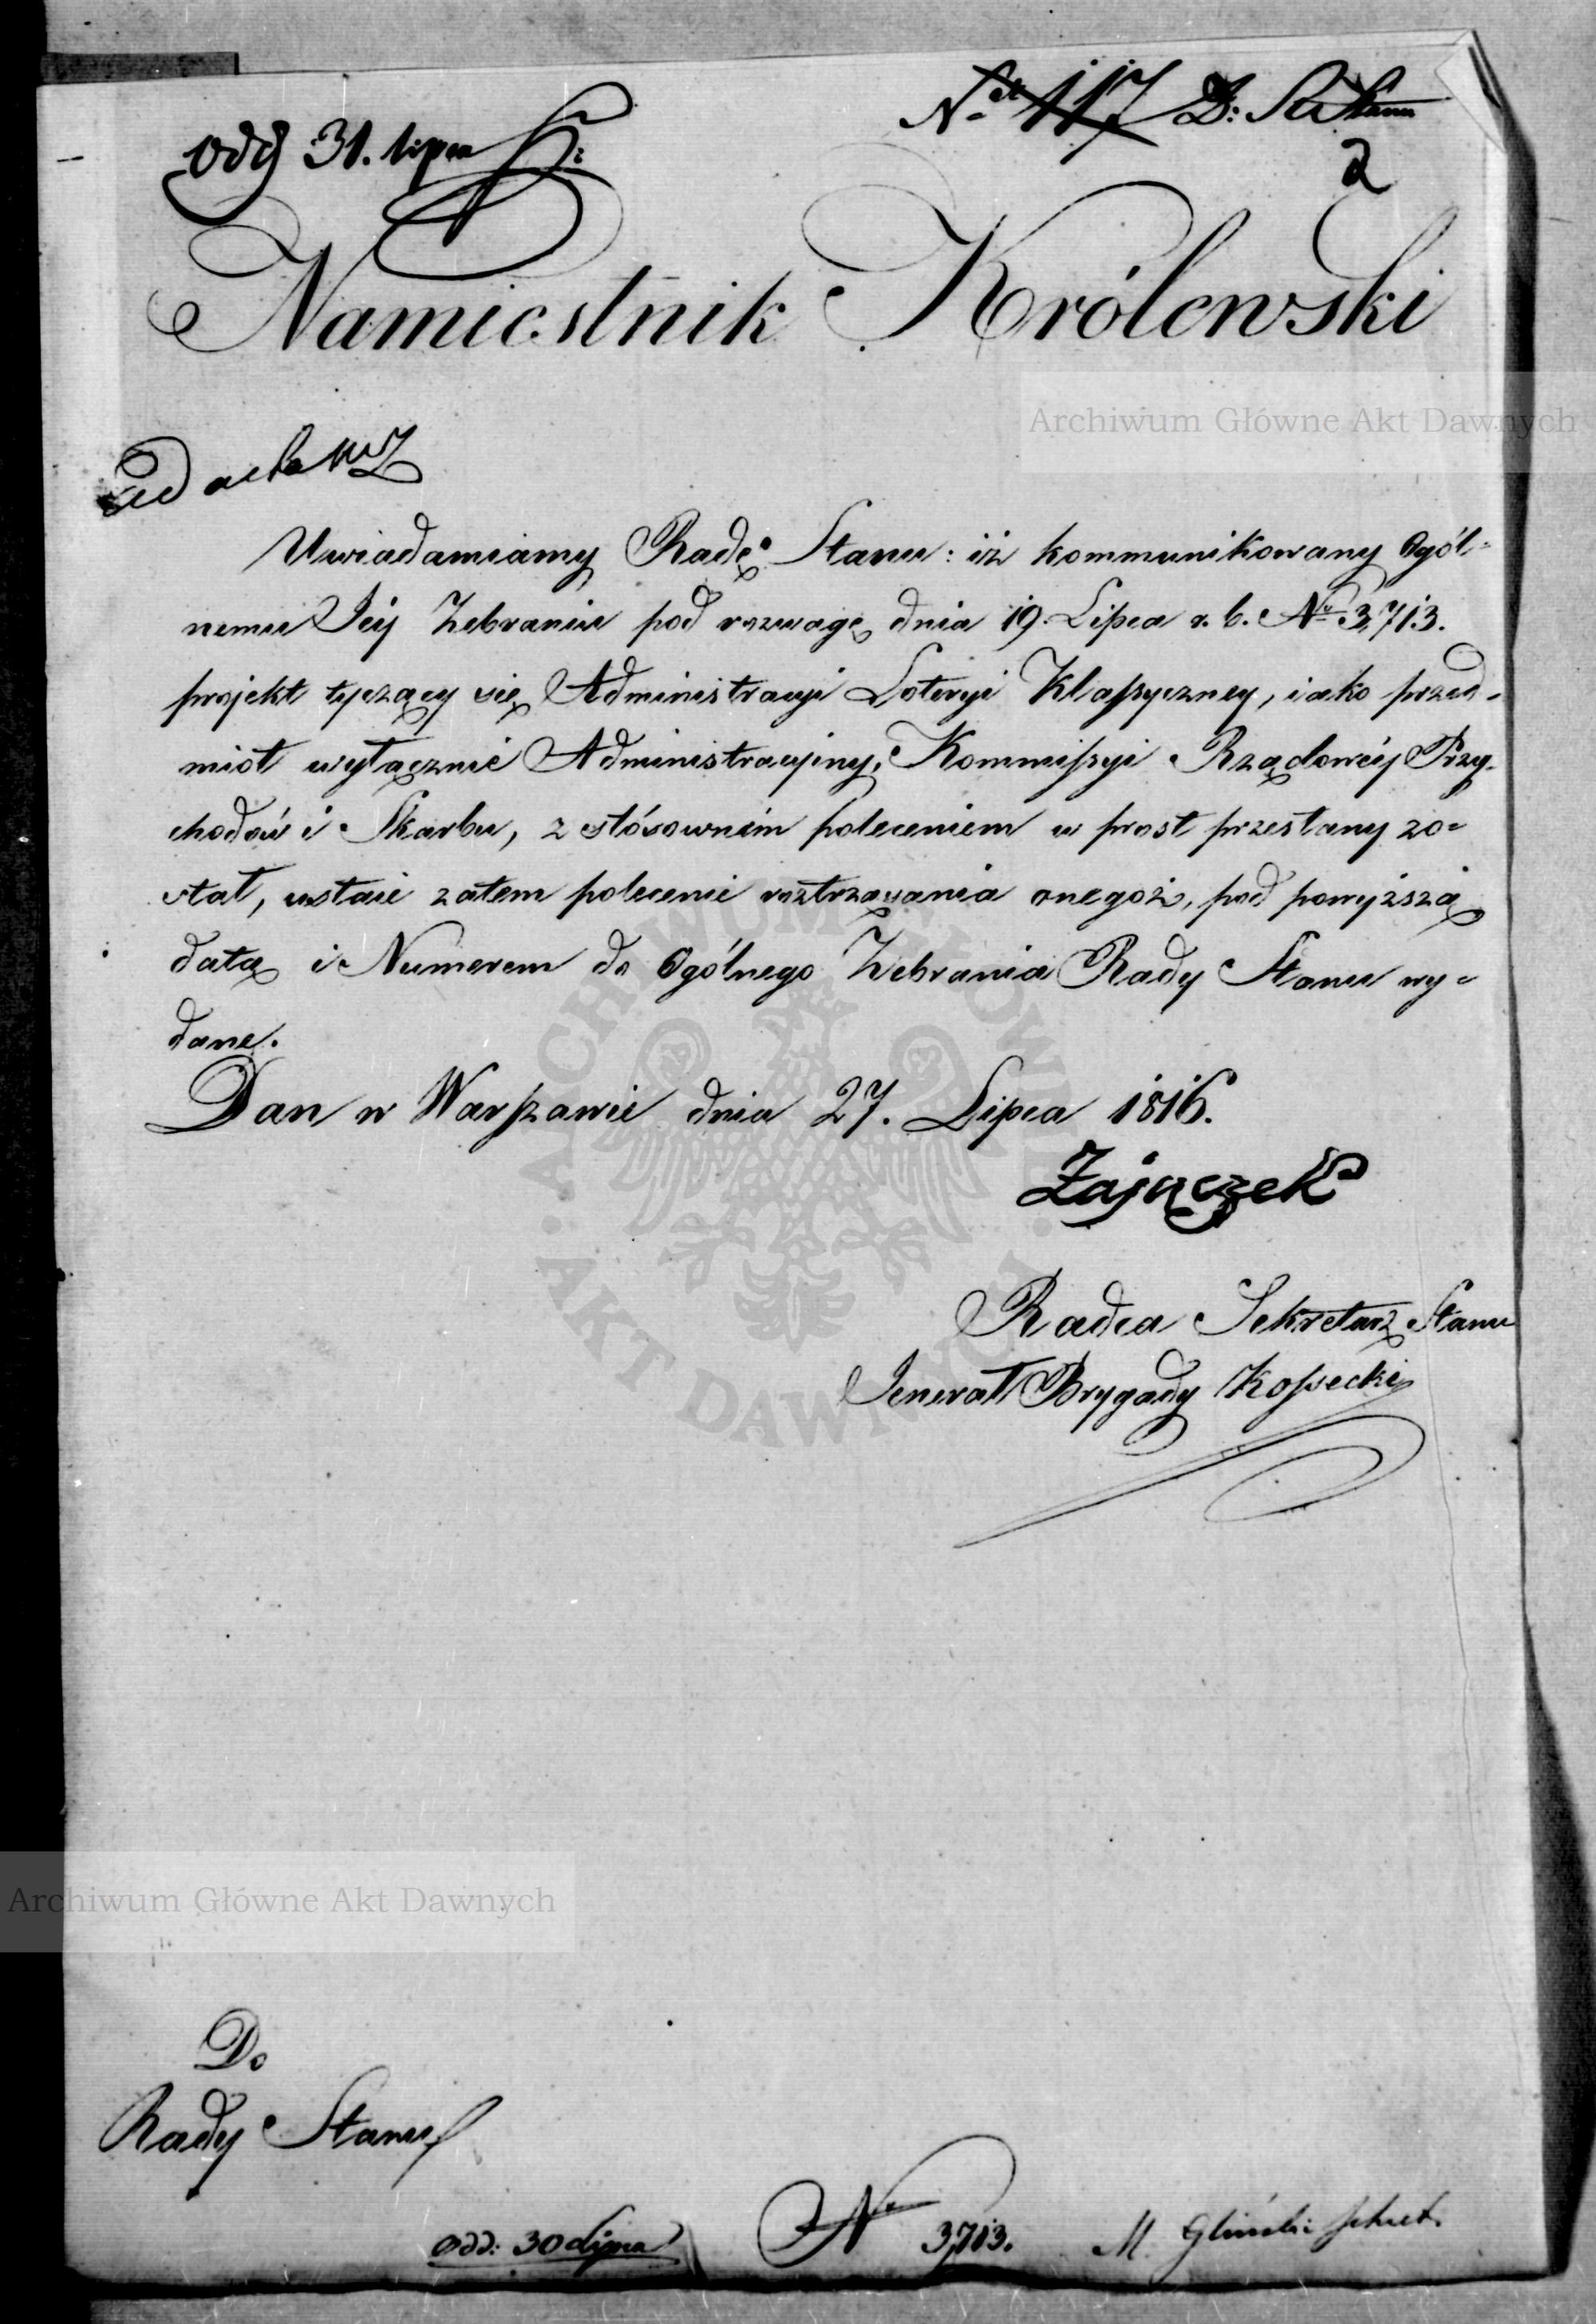 odd 31. lipca
Nro 117 D: R. Stanu
2
Namiestnik Królewski
Archiwum Główne Akt Dawnych
ad acta
Uwiadamiamy Radę Stanu: iż kommunikowany Ogól=
nemu Jéy Zebraniu pod rozwagę dnia 19. Lipca r. b. Nro 3,713.
projekt tyczący się Administracyi Loteryi Klassyczney, iako przed=
miot wyłącznie Administracyiny, Kommissyi Rządowéy Przy=
chodów i Skarbu, z stósowném poleceniem w prost przesłany zo=
stał, ustaie zatem polecenie roztrząsania onegoż, pod powyższą
datą i Numerem do Ogólnego Zebrania Rady Stanu wy=
dane.
Dan w Warszawie dnia 27. Lipca 1816.
Zajączek
Radca Sekretarz Stanu
Jenerał Brygady Kossecki
ARCHIWUM GŁÓWNE AKT DAWNYCH
Archiwum Główne Akt Dawnych
Do
Rady Stanu
odd: 30 Lipca Nro 3,713. M. Gliński sekret.